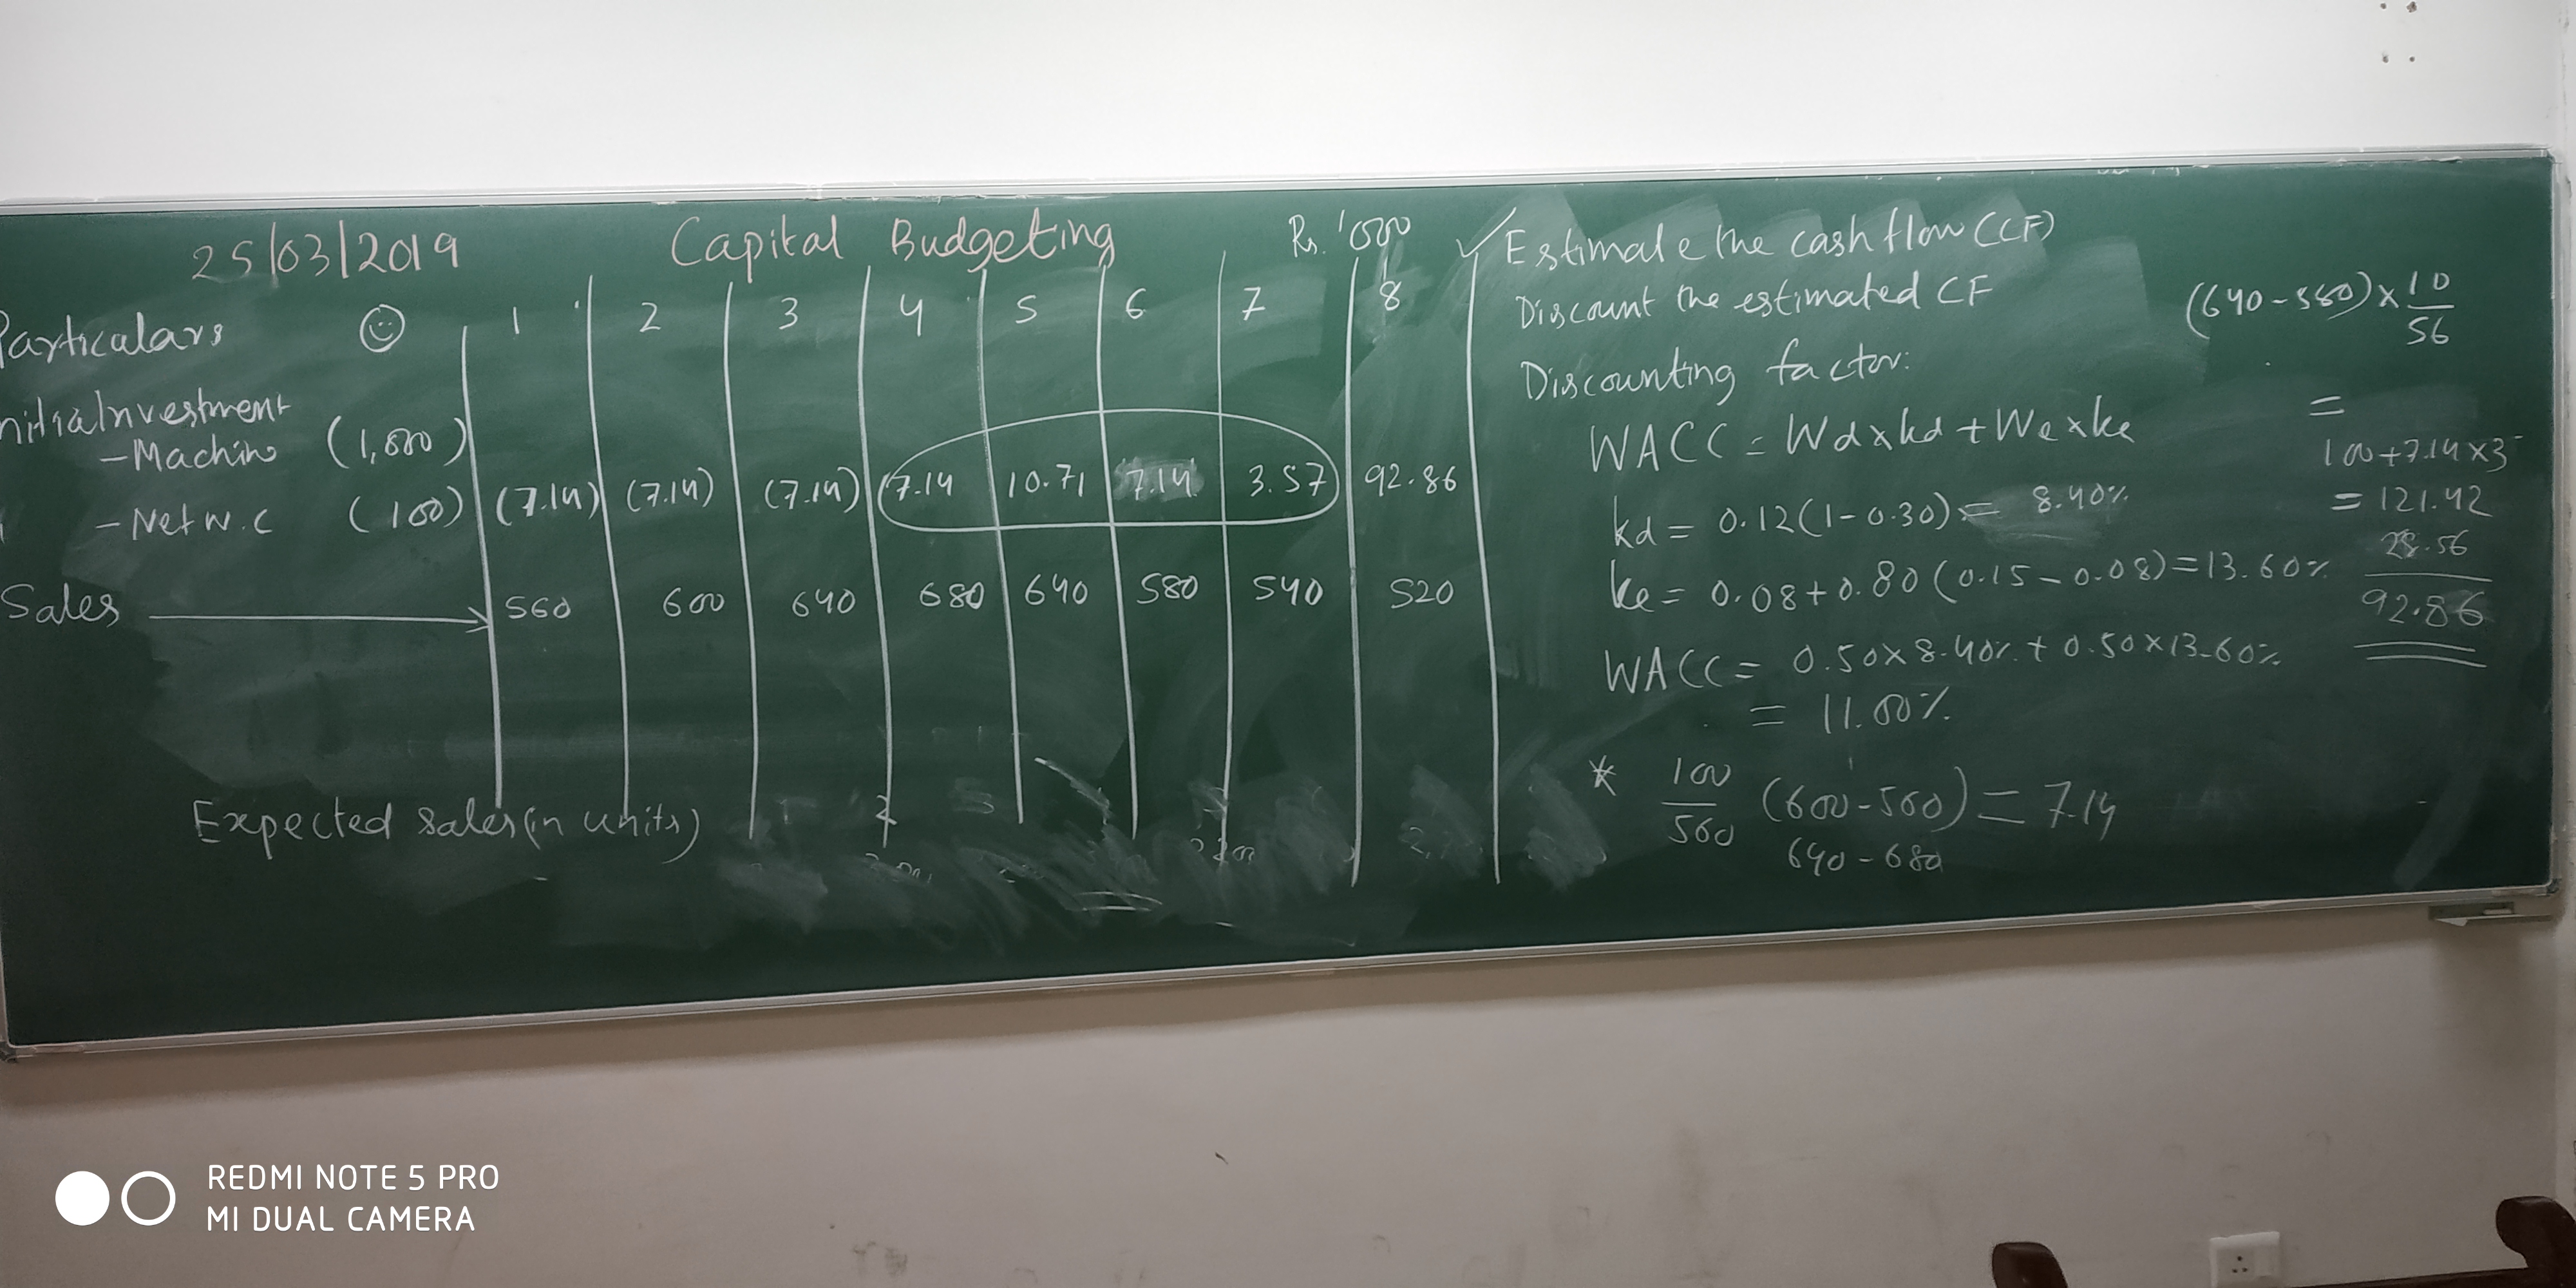 25/03/2019 Capital Budgeting Rs. '000
Particulars 1 2 3 4 5 6 7 8
nitialInvestment
-Machine (1,000)
-Net W.C (100) (7.14) (7.14) (7.14) 7.14 10.71 7.14 3.57 92.86
Sales 560 600 640 680 640 580 540 520
Expected sales(in units)
✓ Estimate the cash flow (CF)
Discount the estimated CF
Discounting factor:
WACC = Wd×kd + We×ke
kd = 0.12(1-0.30) = 8.40%
ke = 0.08+0.80(0.15-0.08)=13.60%
WACC = 0.50×8.40%+0.50×13.60%
= 11.00%
* 100/560 (600-560) = 7.14
640-680
(640-580)×10/56
=
100+7.14×3
= 121.42
28.56
92.86
REDMI NOTE 5 PRO
MI DUAL CAMERA